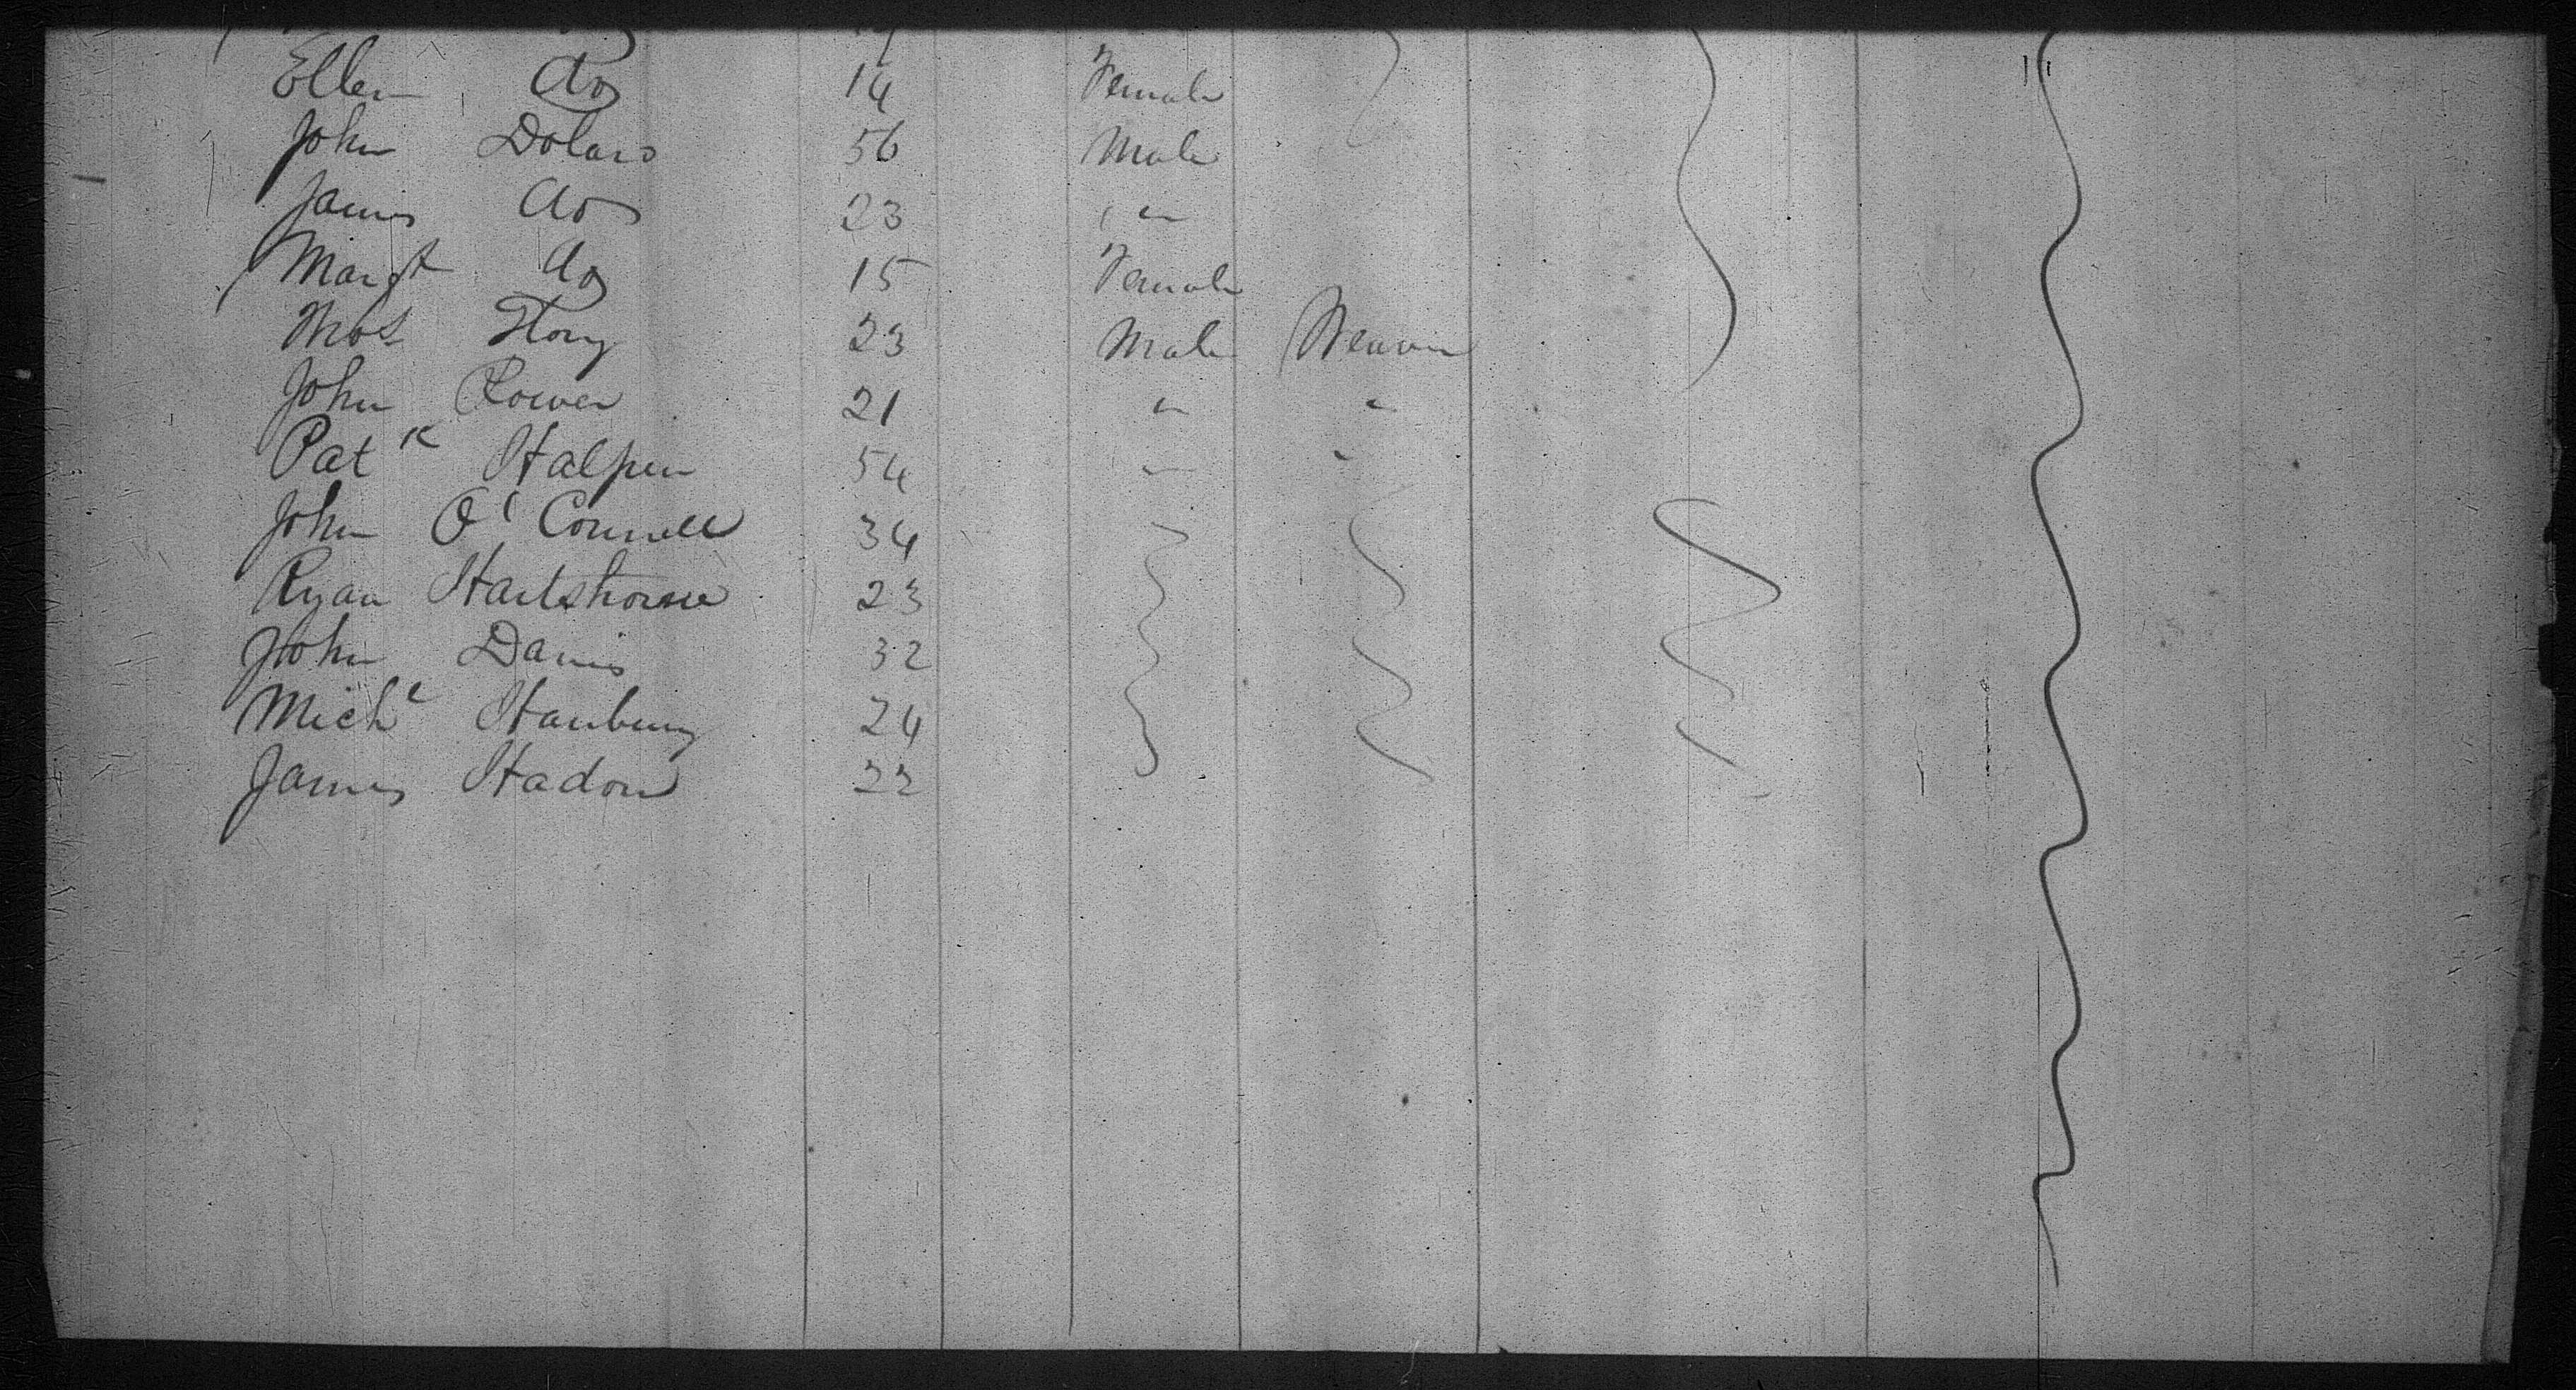 Ellen do 14 Female
John Dolan 56 Male
James do 23 "
Margt do 15 Female
Thos Story 23 Male Weaver
John Power 21 " "
Patk Halpen 54 " "
John O'Connell 34
Ryan Hartshorne 23
John Davis 32
Michl Hanbury 24
James Hadon 22